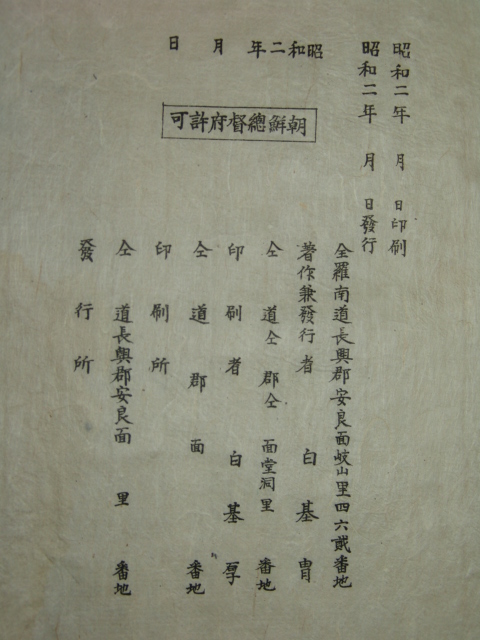 昭和二年 月 日印刷
昭和二年 月 日發行
昭和二年 月 日
朝鮮總督府許可
全羅南道長興郡安良面岐山里四六貳番地
著作兼發行者 白基冑
仝道仝郡仝面堂洞里 番地
印刷者 白基厚
仝道 郡 面 番地
印刷所
仝道長興郡安良面 里 番地
發行所